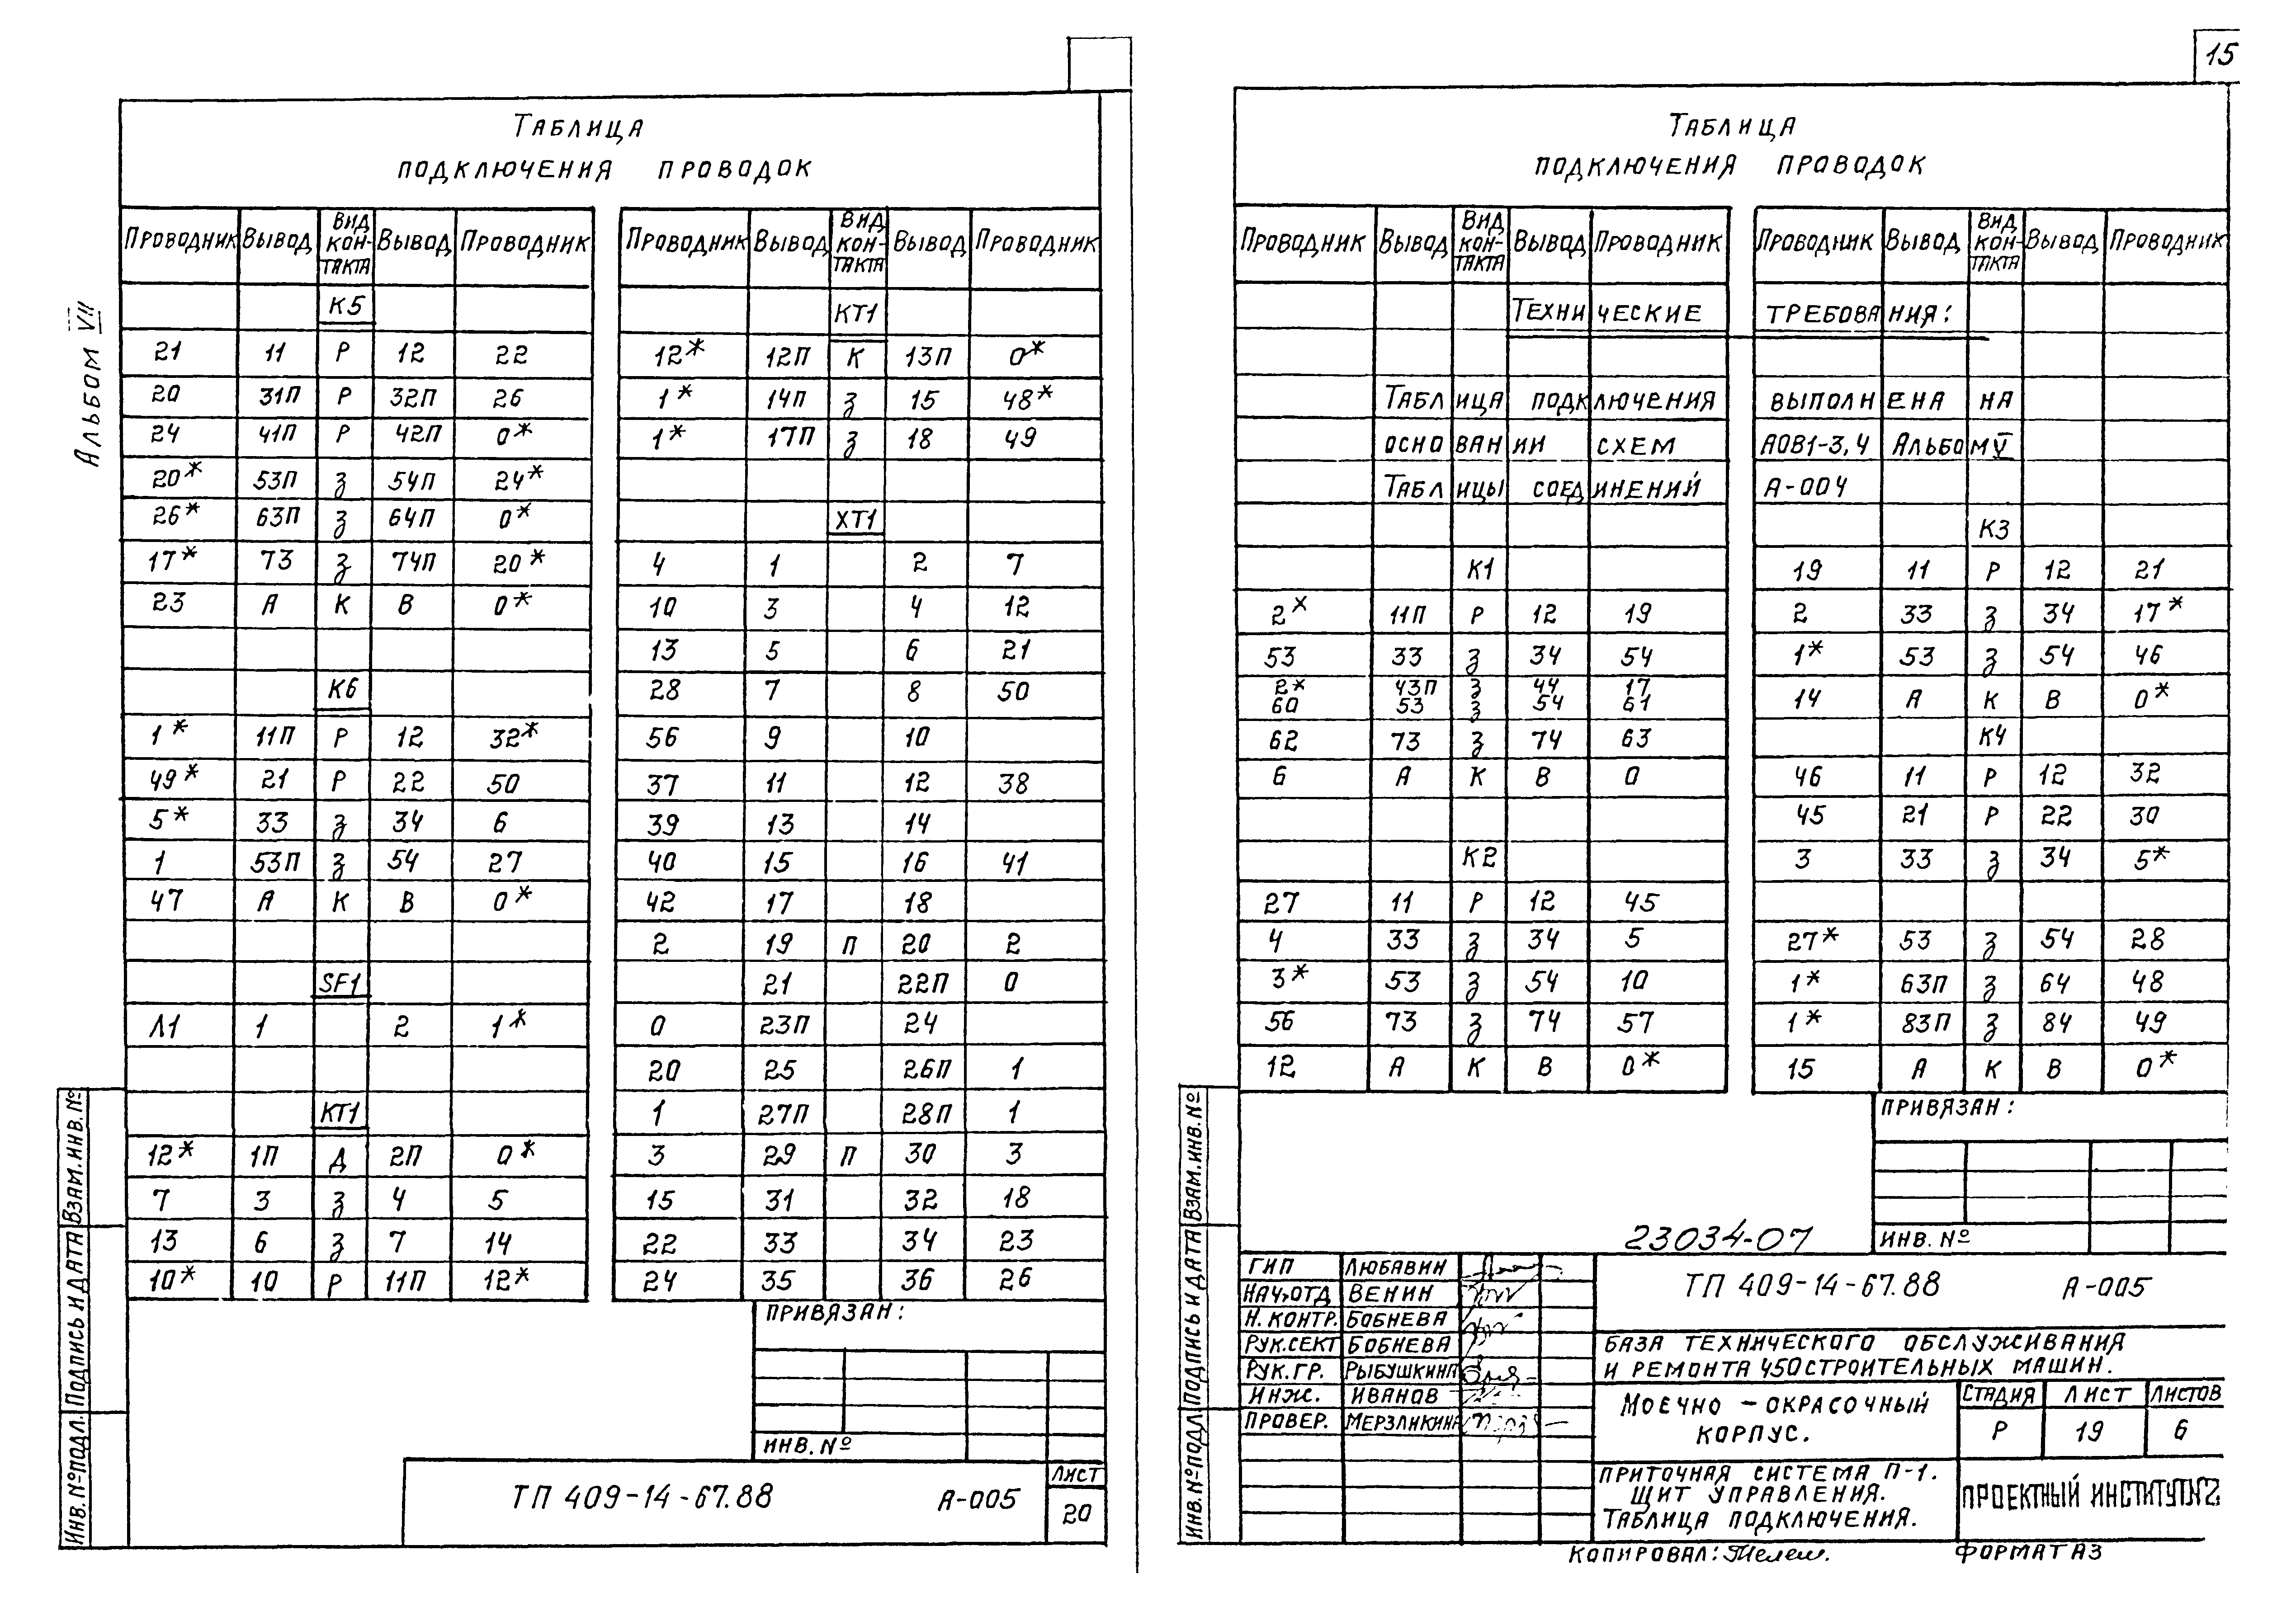 Альбом VII
Таблица
подключения проводок
Проводник Вывод Вид контакта Вывод Проводник
К5
21 11 Р 12 22
20 31П Р 32П 26
24 41П Р 42П 0*
20* 53П З 54П 24*
26* 63П З 64П 0*
17* 73 З 74П 20*
23 А К В 0*
К6
1* 11П Р 12 32*
49* 21 Р 22 50
5* 33 З 34 6
1 53П З 54 27
47 А К В 0*
SF1
Л1 1 2 1*
КТ1
12* 1П Д 2П 0*
7 3 З 4 5
13 6 З 7 14
10* 10 Р 11П 12*
Проводник Вывод Вид контакта Вывод Проводник
КТ1
12* 12П К 13П 0*
1* 14П З 15 48*
1* 17П З 18 49
ХТ1
4 1 2 7
10 3 4 12
13 5 6 21
28 7 8 50
56 9 10
37 11 12 38
39 13 14
40 15 16 41
42 17 18
2 19 П 20 2
21 22П 0
0 23П 24
20 25 26П 1
1 27П 28П 1
3 29 П 30 3
15 31 32 18
22 33 34 23
24 35 36 26
Привязан:
Инв. №
ТП 409-14-67.88 А-005
Лист
20
Инв. № подл. Подпись и дата Взам. инв. №
15
Таблица
подключения проводок
Проводник Вывод Вид контакта Вывод Проводник
Проводник Вывод Вид контакта Вывод Проводник
Технические требования:
Таблица подключения выполнена на
основании схем АОВ1-3,4 Альбом V
Таблицы соединений А-004
К1
2* 11П Р 12 19
53 33 З 34 54
2* 43П З 44 17
60 53 З 54 61
62 73 З 74 63
6 А К В 0
К2
27 11 Р 12 45
4 33 З 34 5
3* 53 З 54 10
56 73 З 74 57
12 А К В 0*
К3
19 11 Р 12 21
2 33 З 34 17*
1* 53 З 54 46
14 А К В 0*
К4
46 11 Р 12 32
45 21 Р 22 30
3 33 З 34 5*
27* 53 З 54 28
1* 63П З 64 48
1* 83П З 84 49
15 А К В 0*
Привязан:
Инв. №
23034-07
Инв. № подл. Подпись и дата Взам. инв. №
ГИП Любавин
Нач. отд Венин
Н. контр. Бобнева
Рук. сект Бобнева
Рук. гр. Рыбушкина
Инж. Иванов
Провер. Мерзликина
ТП 409-14-67.88 А-005
База технического обслуживания
и ремонта 450 строительных машин.
Моечно-окрасочный
корпус.
Стадия Лист Листов
Р 19 6
Приточная система П-1.
Щит управления.
Таблица подключения.
Проектный институт №2
Копировал: Формат А3